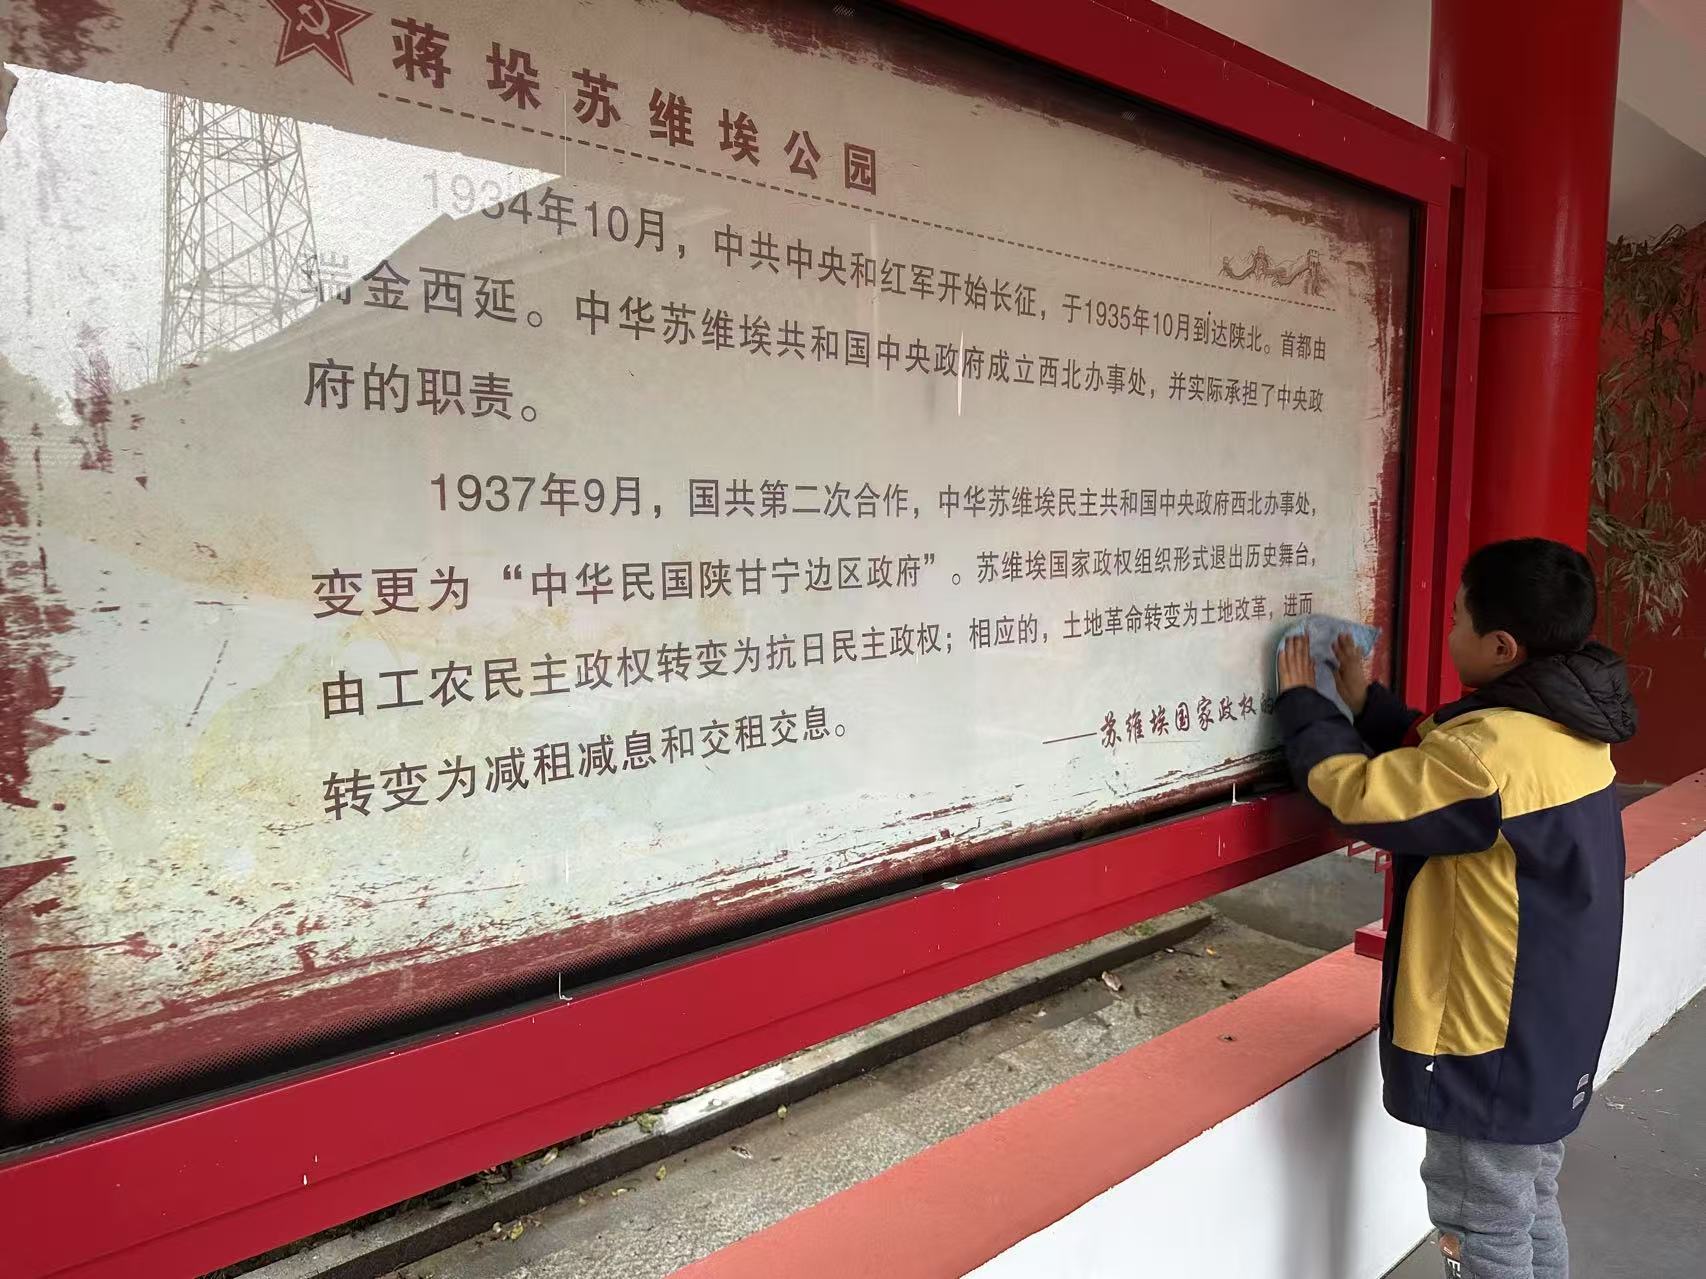 蒋垛苏维埃公园
1934年10月，中共中央和红军开始长征，于1935年10月到达陕北。首都由
瑞金西延。中华苏维埃共和国中央政府成立西北办事处，并实际承担了中央政
府的职责。
1937年9月，国共第二次合作，中华苏维埃民主共和国中央政府西北办事处，
变更为“中华民国陕甘宁边区政府”。苏维埃国家政权组织形式退出历史舞台，
由工农民主政权转变为抗日民主政权；相应的，土地革命转变为土地改革，进而
转变为减租减息和交租交息。
——苏维埃国家政权的